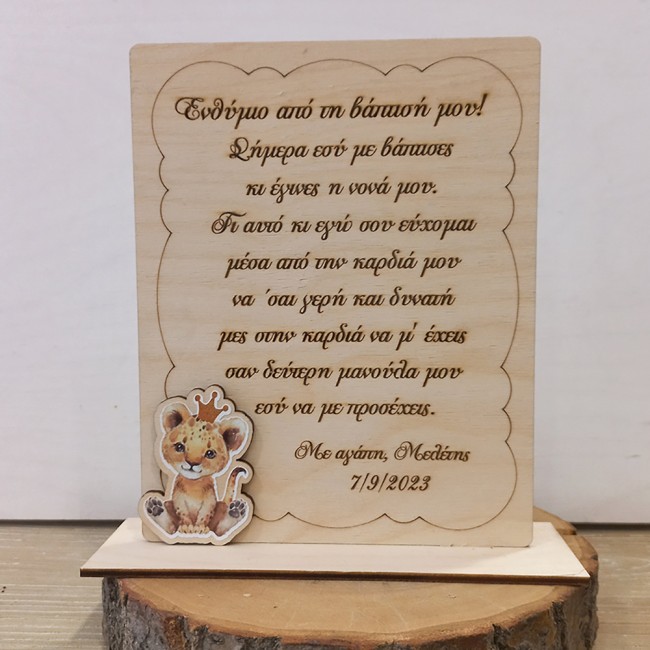 Ενθύμιο από τη βάπτισή μου!
Σήμερα εσύ με βάπτισες
κι έγινες η νονά μου.
Γι αυτό κι εγώ σου εύχομαι
μέσα από την καρδιά μου
να 'σαι γερή και δυνατή
μες στην καρδιά να μ' έχεις
σαν δεύτερη μανούλα μου
εσύ να με προσέχεις.
Με αγάπη, Μελέτης
7/9/2023